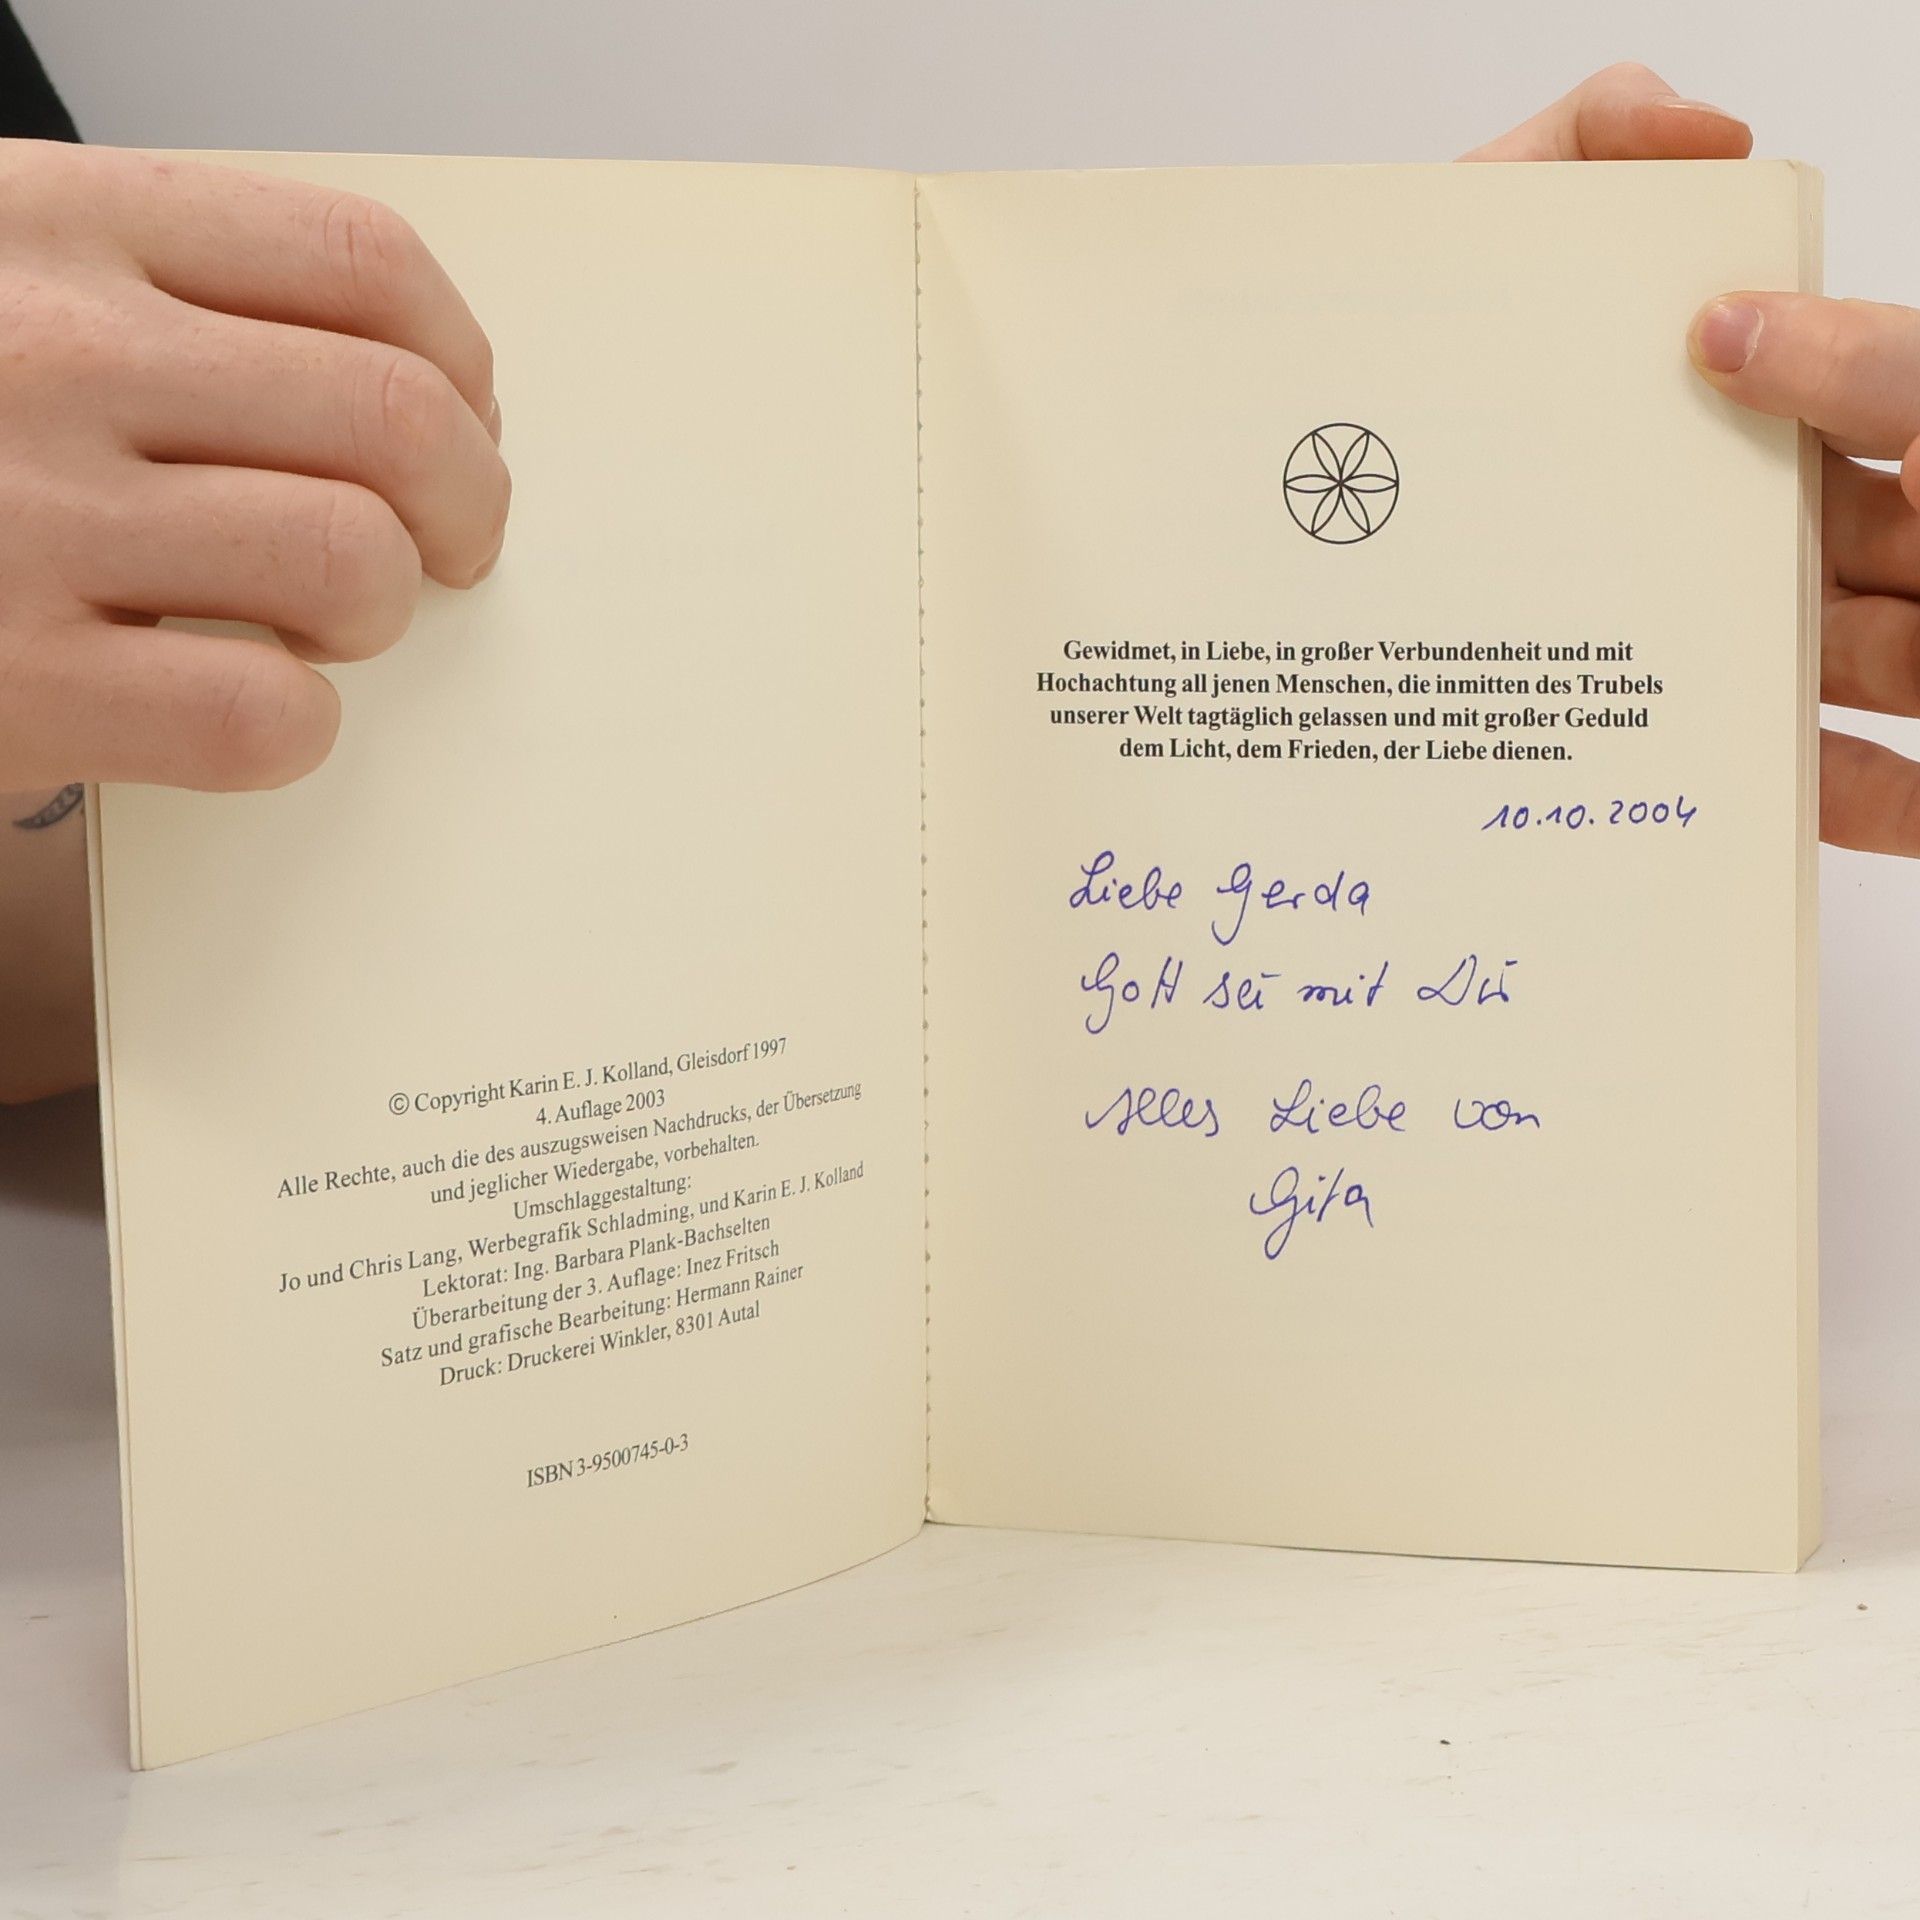 © Copyright Karin E. J. Kolland, Gleisdorf 1997
4. Auflage 2003
Alle Rechte, auch die des auszugsweisen Nachdrucks, der Übersetzung
und jeglicher Wiedergabe, vorbehalten.
Umschlaggestaltung:
Jo und Chris Lang, Werbegrafik Schladming, und Karin E. J. Kolland
Lektorat: Ing. Barbara Plank-Bachselten
Überarbeitung der 3. Auflage: Inez Fritsch
Satz und grafische Bearbeitung: Hermann Rainer
Druck: Druckerei Winkler, 8301 Autal
ISBN 3-9500745-0-3
Gewidmet, in Liebe, in großer Verbundenheit und mit
Hochachtung all jenen Menschen, die inmitten des Trubels
unserer Welt tagtäglich gelassen und mit großer Geduld
dem Licht, dem Frieden, der Liebe dienen.
10.10.2004
Liebe Gerda
Gott sei mit Dir
Alles Liebe von
Gita